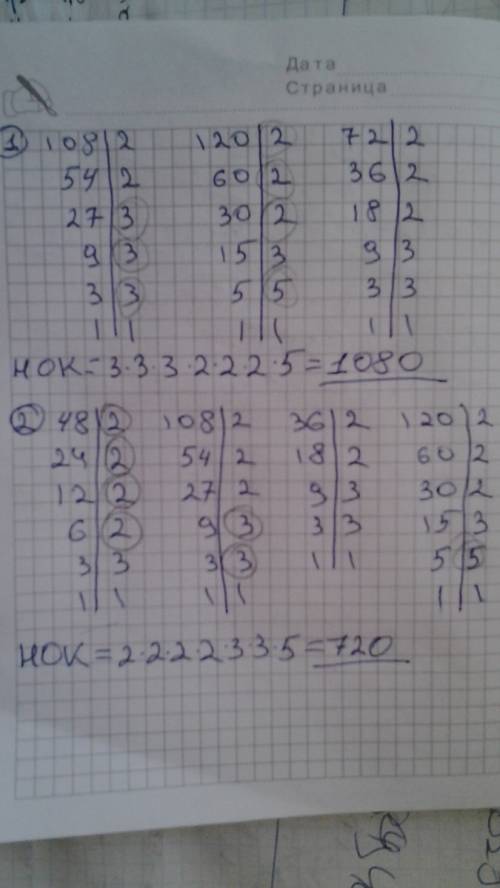 Дата
Страница
1 108 | 2 120 | 2 72 | 2
54 | 2 60 | 2 36 | 2
27 | 3 30 | 2 18 | 2
9 | 3 15 | 3 9 | 3
3 | 3 5 | 5 3 | 3
1 | 1 1 | 1 1 | 1
НОК = 3·3·3·2·2·2·5 = 1080
2 48 | 2 108 | 2 36 | 2 120 | 2
24 | 2 54 | 2 18 | 2 60 | 2
12 | 2 27 | 2 9 | 3 30 | 2
6 | 2 9 | 3 3 | 3 15 | 3
3 | 3 3 | 3 1 | 1 5 | 5
1 | 1 1 | 1 1 | 1
НОК = 2·2·2·2·3·3·5 = 720